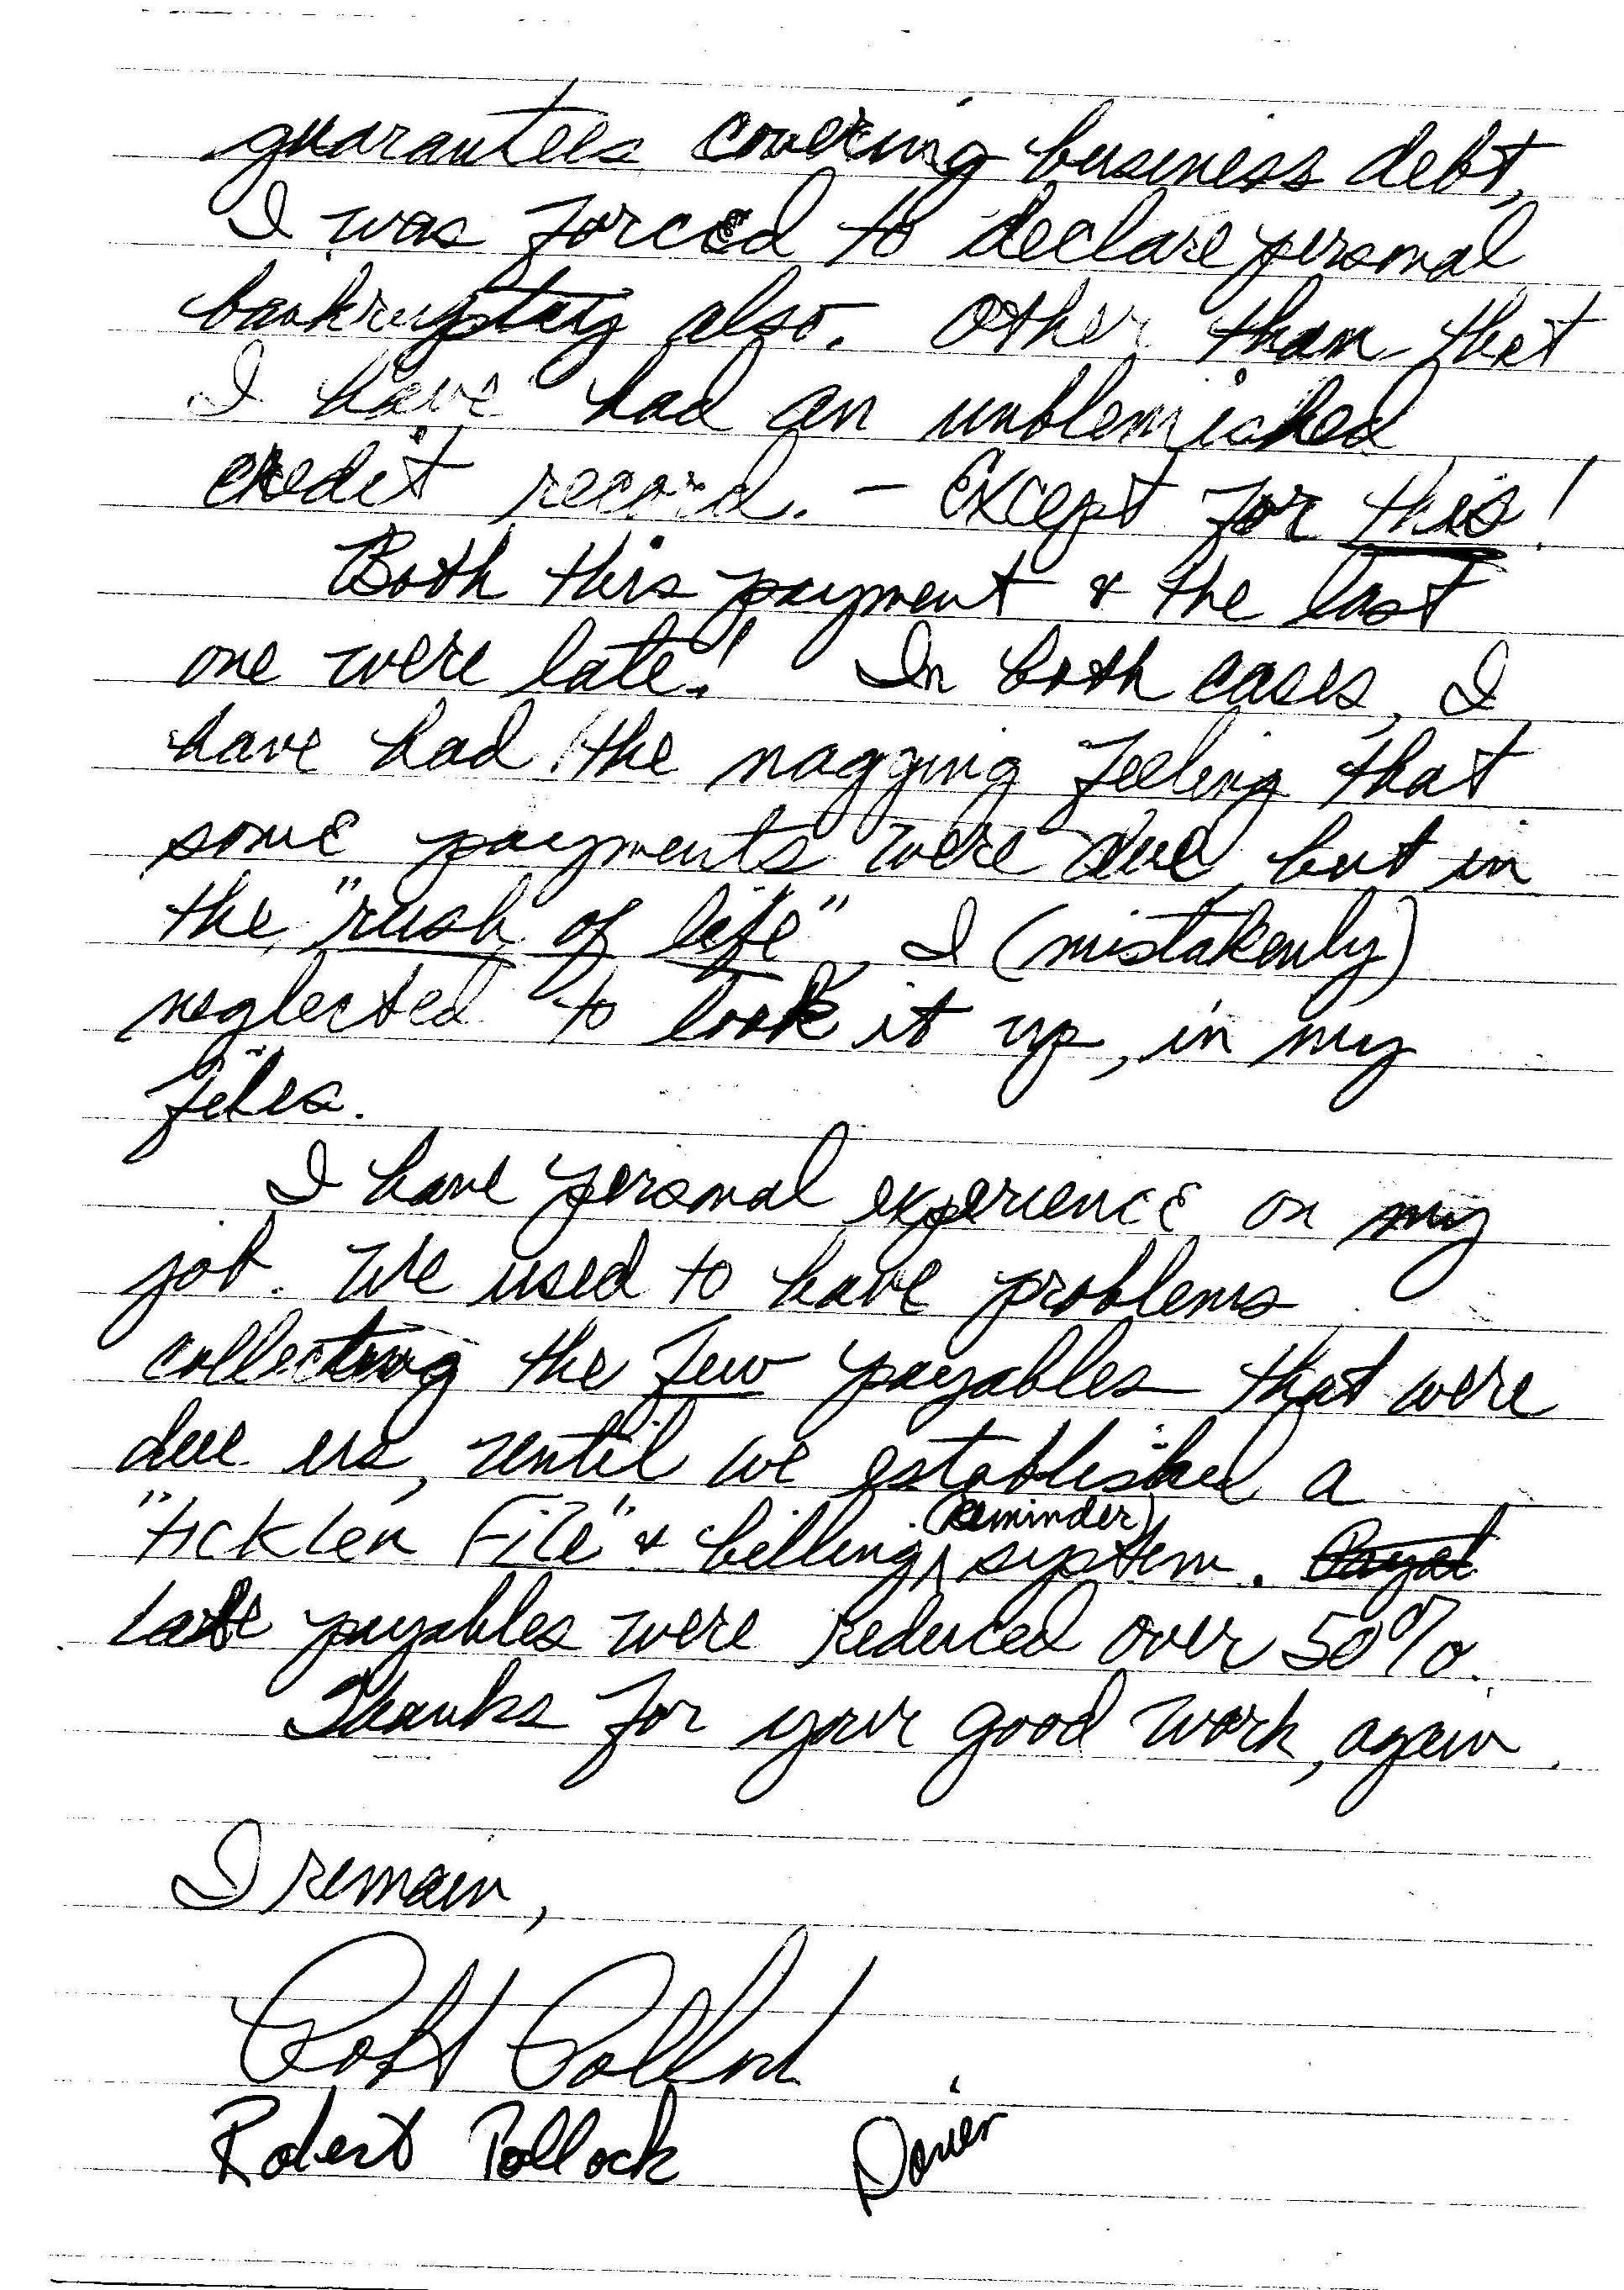 guarantees covering business debt,
I was forced to declare personal
bankruptcy also. Other than that
I have had an unblemished
credit record. - Except for this!
Both this payment & the last
one were late! In both cases, I
have had the nagging feeling that
some payments were due, but in
the "rush of life", I (mistakenly)
neglected to look it up, in my
files.
I have personal experience on my
job. We used to have problems
collecting the few payables that were
due us, until we established a
"tickler File" & billing (reminder) system.
Late payables were reduced over 50%.
Thanks for your good work, again.
I remain,
Robt Pollock
Robert Pollock